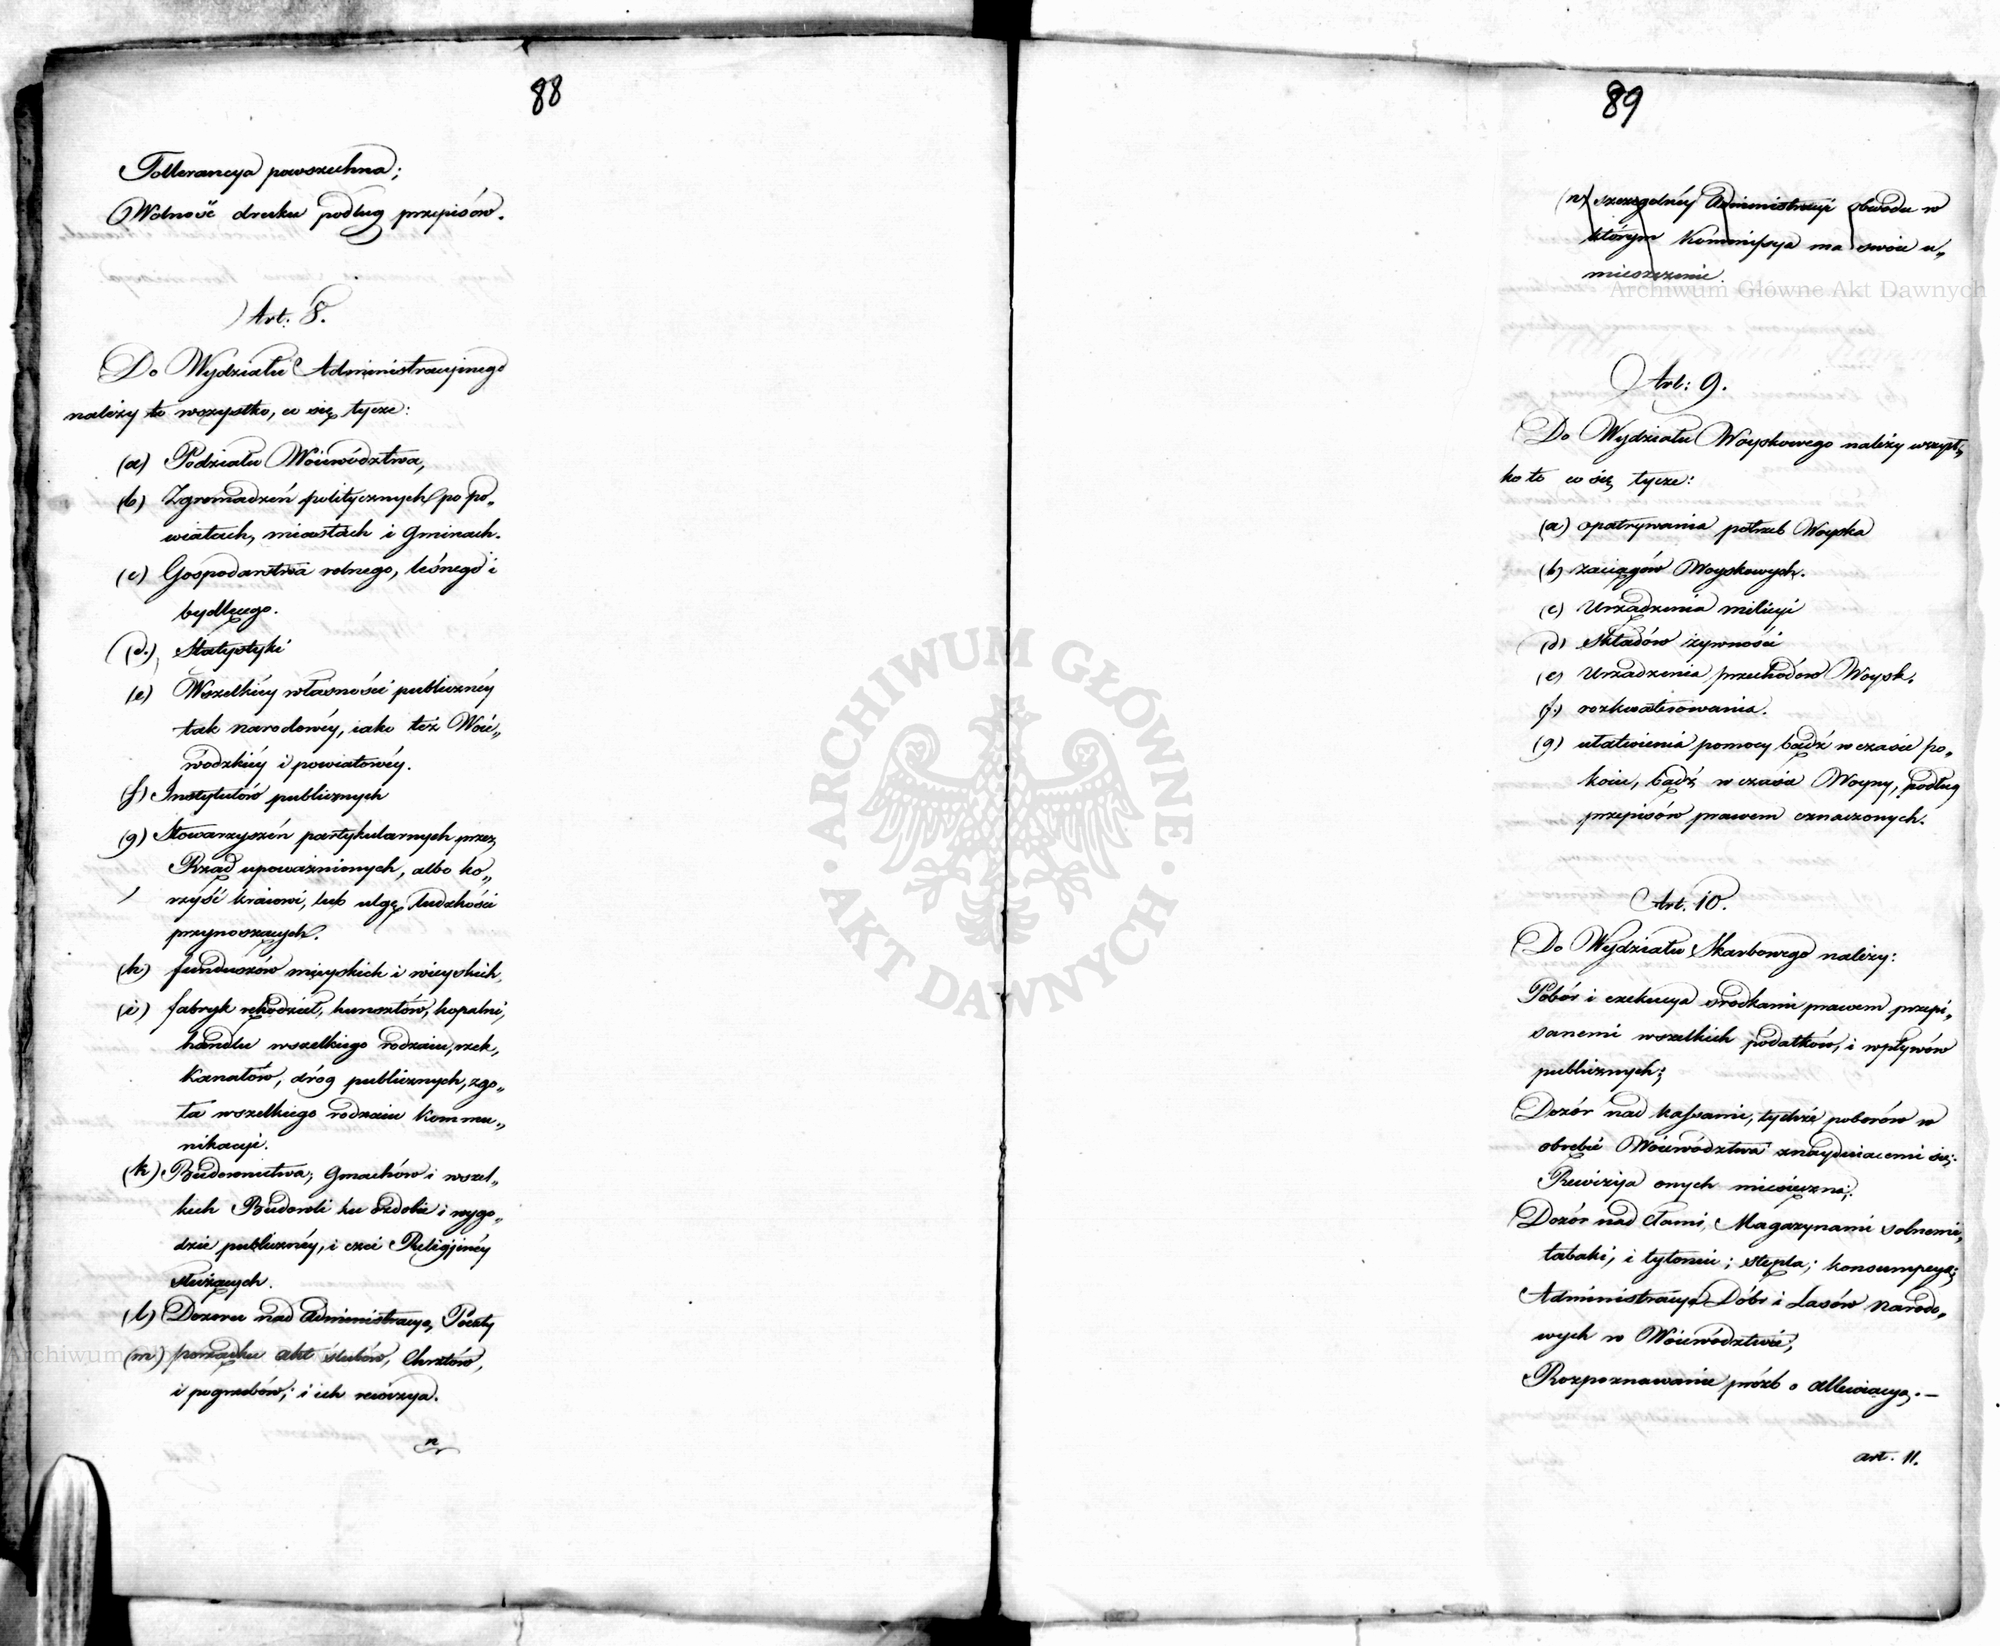 88
Tollerancya powszechna;
Wolność druku podług przepisów.
Art: 8.
Do Wydziału Administracyinego
należy to wszystko, co się tycze:
(a) Podziału Woiewództwa,
(b) Zgromadzeń politycznych po po„
wiatach, miastach i Gminach.
(c) Gospodarstwa rolnego, leśnego i
bydlęcego.
(d.) Statystyki
(e) Wszelkiey własności publiczney
tak narodowéy, iako też Woie„
wódzkiey i powiatowéy.
(f) Instytutów publicznych
(g) Stowarzyszeń partykularnych przez
Rząd upoważnionych, albo ko„
rzyść kraiowi, lub ulgę ludzkości
przynoszących.
(h) funduszów mieyskich i wieyskich,
(i) fabryk rękodzieł, kunsztów, kopalni,
handlu wszelkiego rodzaiu, rzek,
Kanałów, dróg publicznych, zgo„
ła wszelkiego rodzaiu Kommu„
nikacyi.
(k) Budownictwa; Gmachów i wszel„
kich Budowli ku ozdobie i wygo„
dzie publicznéy, i czci Religijnéy
służących.
(l) Dozoru nad Administracyą Poczty
(m) porządku akt ślubów, Chrztów,
i pogrzebów; i ich rewizya.
n
89
(n) szczególnéy Administracyi obwodu w
którym Kommissya ma swoie u„
mieszczenie.
Art: 9.
Do Wydziału Woyskowego należy wszyst„
ko to co się tycze:
(a) opatrywania potrzeb Woyska
(b) zaciągów Woyskowych.
(c) Urządzenia milicyi
(d) Składów żywności
(e) Urządzenia przechodów Woysk.
(f.) rozkwaterowania.
(g) ułatwienia pomocy bądź w czasie po„
koiu, bądź w czasie Woyny, podług
przepisów prawem oznaczonych.
Art. 10.
Do Wydziału Skarbowego należy:
Pobór i exekucya środkami prawem przepi„
sanemi wszelkich podatków, i wpływów
publicznych;
Dozór nad kassami, tychże poborów w
obrębie Woiewództwa znayduiącemi się;
Rewizyia onych miesięczna;
Dozór nad cłami, Magazynami solnemi,
tabaki, i tytoniu; stępla; konsumpcyi;
Administracya Dóbr i Lasów Narodo„
wych w Woiewództwie;
Rozpoznawanie próźb o allewiacyą.—
art. 11.
Archiwum Główne Akt Dawnych
ARCHIWUM GŁÓWNE · AKT DAWNYCH ·